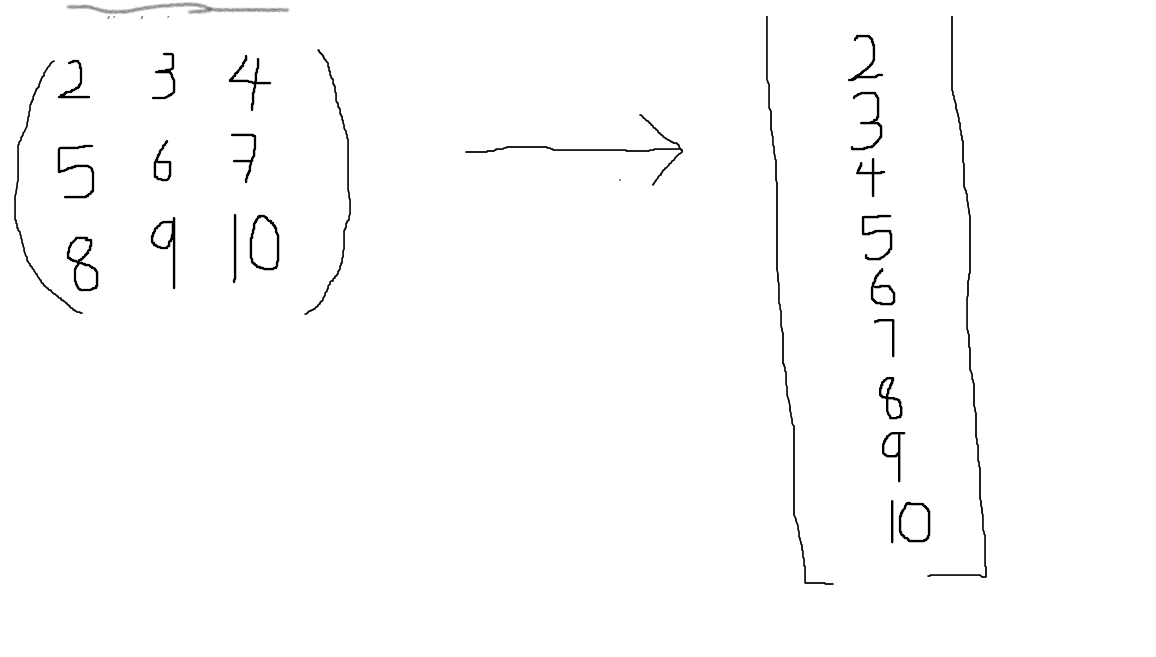 2 3 4
5 6 7
8 9 10
2
3
4
5
6
7
8
9
10